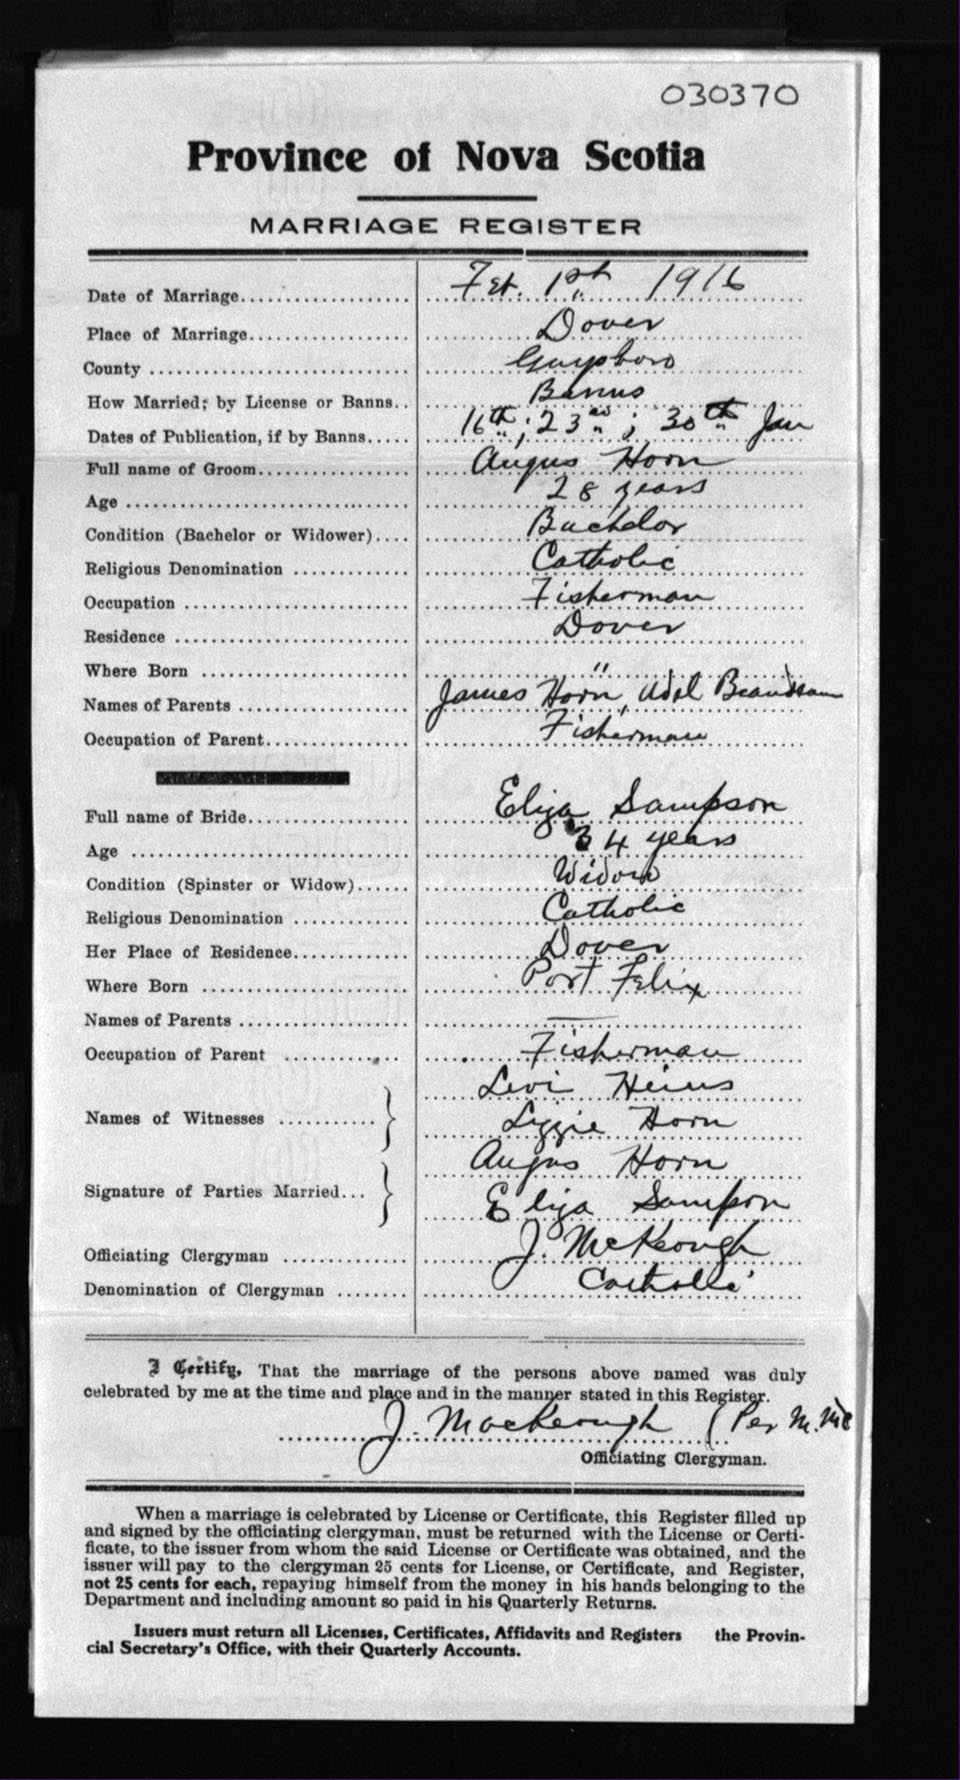 030370
Province of Nova Scotia
MARRIAGE REGISTER
Date of Marriage.................... Feb. 1st. 1916
Place of Marriage................... Dover
County .............................. Guysboro
How Married; by License or Banns.. Banns
Dates of Publication, if by Banns..... 16th; 23rd; 30th Jan
Full name of Groom.................. Angus Horn
Age ................................. 28 years
Condition (Bachelor or Widower).... Bachelor
Religious Denomination .............. Catholic
Occupation .......................... Fisherman
Residence ........................... Dover
Where Born ......................... "
Names of Parents .................... James Horn,
Occupation of Parent................. Fisherman
Full name of Bride................... Eliza Sampson
Age ................................. 34 years
Condition (Spinster or Widow)...... Widow
Religious Denomination .............. Catholic
Her Place of Residence.............. Dover
Where Born ......................... Port Felix
Names of Parents .................... —
Occupation of Parent ............. Fisherman
Levi
Names of Witnesses ........... } Lizzie Horn
Angus Horn
Signature of Parties Married... } Eliza Sampson
Officiating Clergyman .............. J. McKeough
Denomination of Clergyman ........ Catholic
I Certify, That the marriage of the persons above named was duly
celebrated by me at the time and place and in the manner stated in this Register.
J. MacKeough (Per M. Mc
Officiating Clergyman.
When a marriage is celebrated by License or Certificate, this Register filled up
and signed by the officiating clergyman, must be returned with the License or Certi-
ficate, to the issuer from whom the said License or Certificate was obtained, and the
issuer will pay to the clergyman 25 cents for License, or Certificate, and Register,
not 25 cents for each, repaying himself from the money in his hands belonging to the
Department and including amount so paid in his Quarterly Returns.
Issuers must return all Licenses, Certificates, Affidavits and Registers the Provin-
cial Secretary's Office, with their Quarterly Accounts.